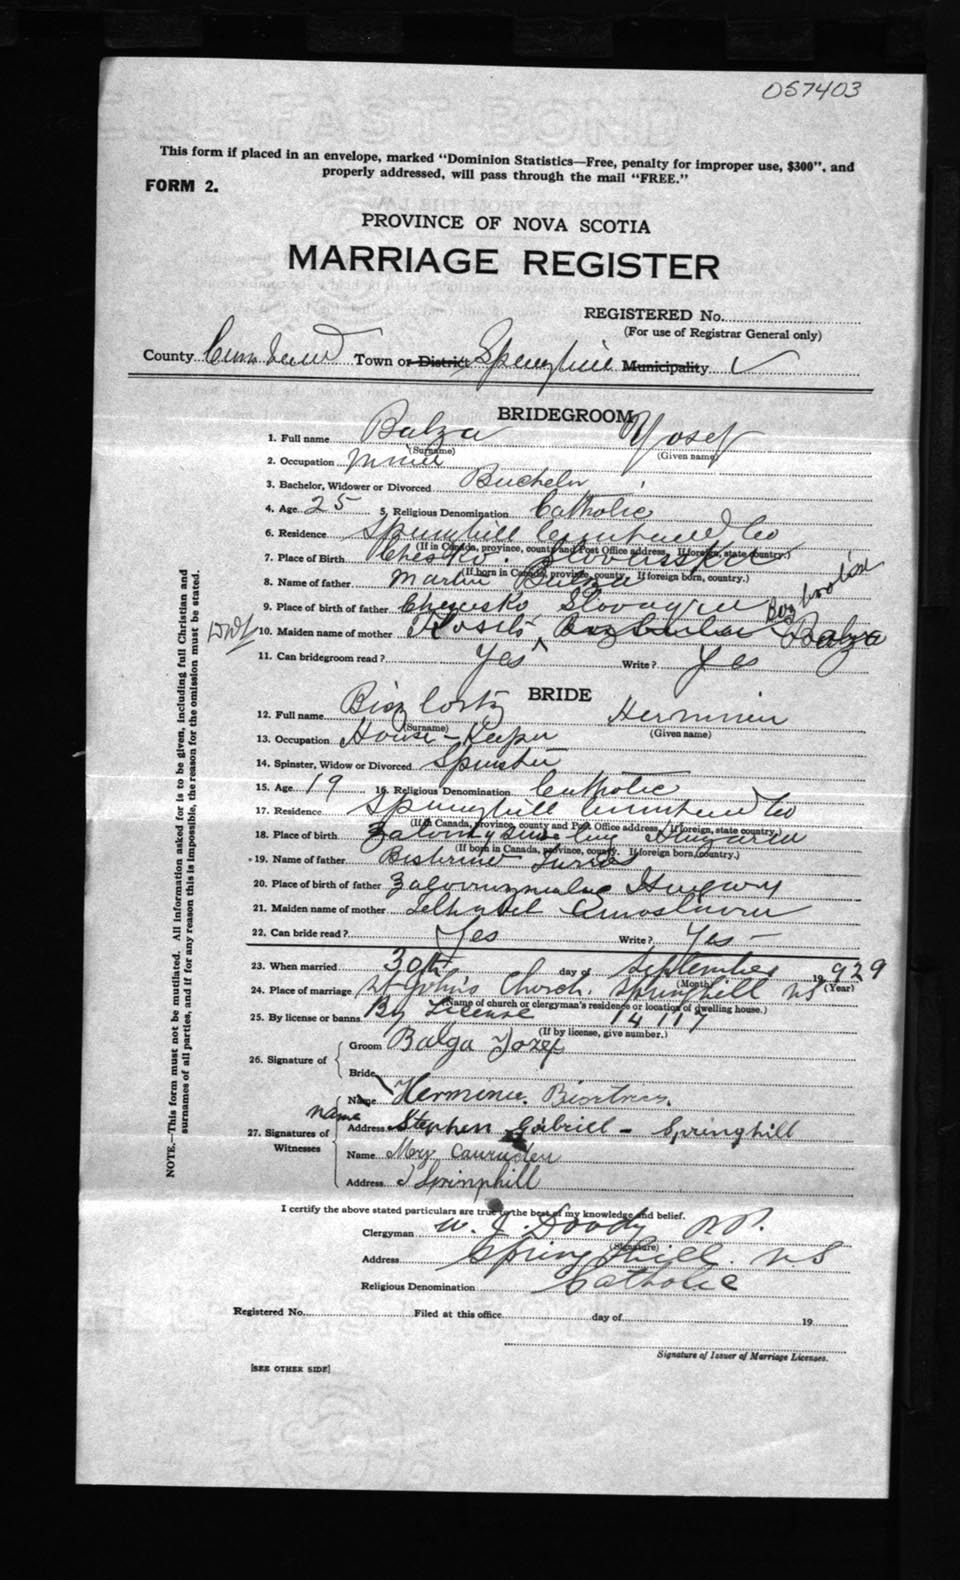 057403
This form if placed in an envelope, marked "Dominion Statistics—Free, penalty for improper use, $300", and
properly addressed, will pass through the mail "FREE."
FORM 2.
PROVINCE OF NOVA SCOTIA
MARRIAGE REGISTER
REGISTERED No.
(For use of Registrar General only)
County Cumberland Town or District Springhill Municipality ✓
BRIDEGROOM
1. Full name Balza Yosef
(Surname) (Given name)
2. Occupation Miner
3. Bachelor, Widower or Divorced Bachelor
4. Age 25 5. Religious Denomination Catholic
6. Residence Springhill Cumberland Co
(If in Canada, province, county and Post Office address. If foreign, state country.)
7. Place of Birth
(If born in Canada, province, county. If foreign born, country.)
8. Name of father Martin Balza
9. Place of birth of father
10. Maiden name of mother Balza
11. Can bridegroom read? Yes Write? Yes
BRIDE
12. Full name Herminie
(Surname) (Given name)
13. Occupation House-Keeper
14. Spinster, Widow or Divorced Spinster
15. Age 19 16. Religious Denomination Catholic
17. Residence Springhill Cumberland Co
(If in Canada, province, county and Post Office address. If foreign, state country.)
18. Place of birth
(If born in Canada, province, county. If foreign born, country.)
19. Name of father
20. Place of birth of father
21. Maiden name of mother
22. Can bride read? Yes Write? Yes —
23. When married 30th day of September 1929
(Month) (Year)
24. Place of marriage St John's Church. Springhill NS
(Name of church or clergyman's residence or location of dwelling house.)
25. By license or banns. By License 14117
(If by license, give number.)
26. Signature of
Groom Balga Jozef
Bride
Name Herminie
name
27. Signatures of
Witnesses
Address Stephen Gabriel - Springhill
Name Mary
Address Springhill
I certify the above stated particulars are true to the best of my knowledge and belief.
Clergyman W. J. Doody P.P.
(Signature)
Address Spring Hill. N.S
Religious Denomination Catholic
Registered No. Filed at this office day of 19
Signature of Issuer of Marriage Licenses.
[SEE OTHER SIDE]
NOTE.—This form must not be mutilated. All information asked for is to be given, including full Christian and
surnames of all parties, and if for any reason this is impossible, the reason for the omission must be stated.